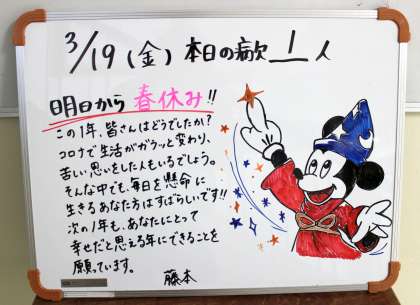 3/19(金) 本日の病欠 1人
明日から 春休み!!
この1年、皆さんはどうでしたか?
コロナで生活がガラッと変わり、
苦しい思いをした人もいるでしょう。
そんな中でも、毎日を懸命に
生きるあなた方はすばらしいです!!
次の1年も、あなたにとって
幸せだと思える年にできることを
願っています。
藤本